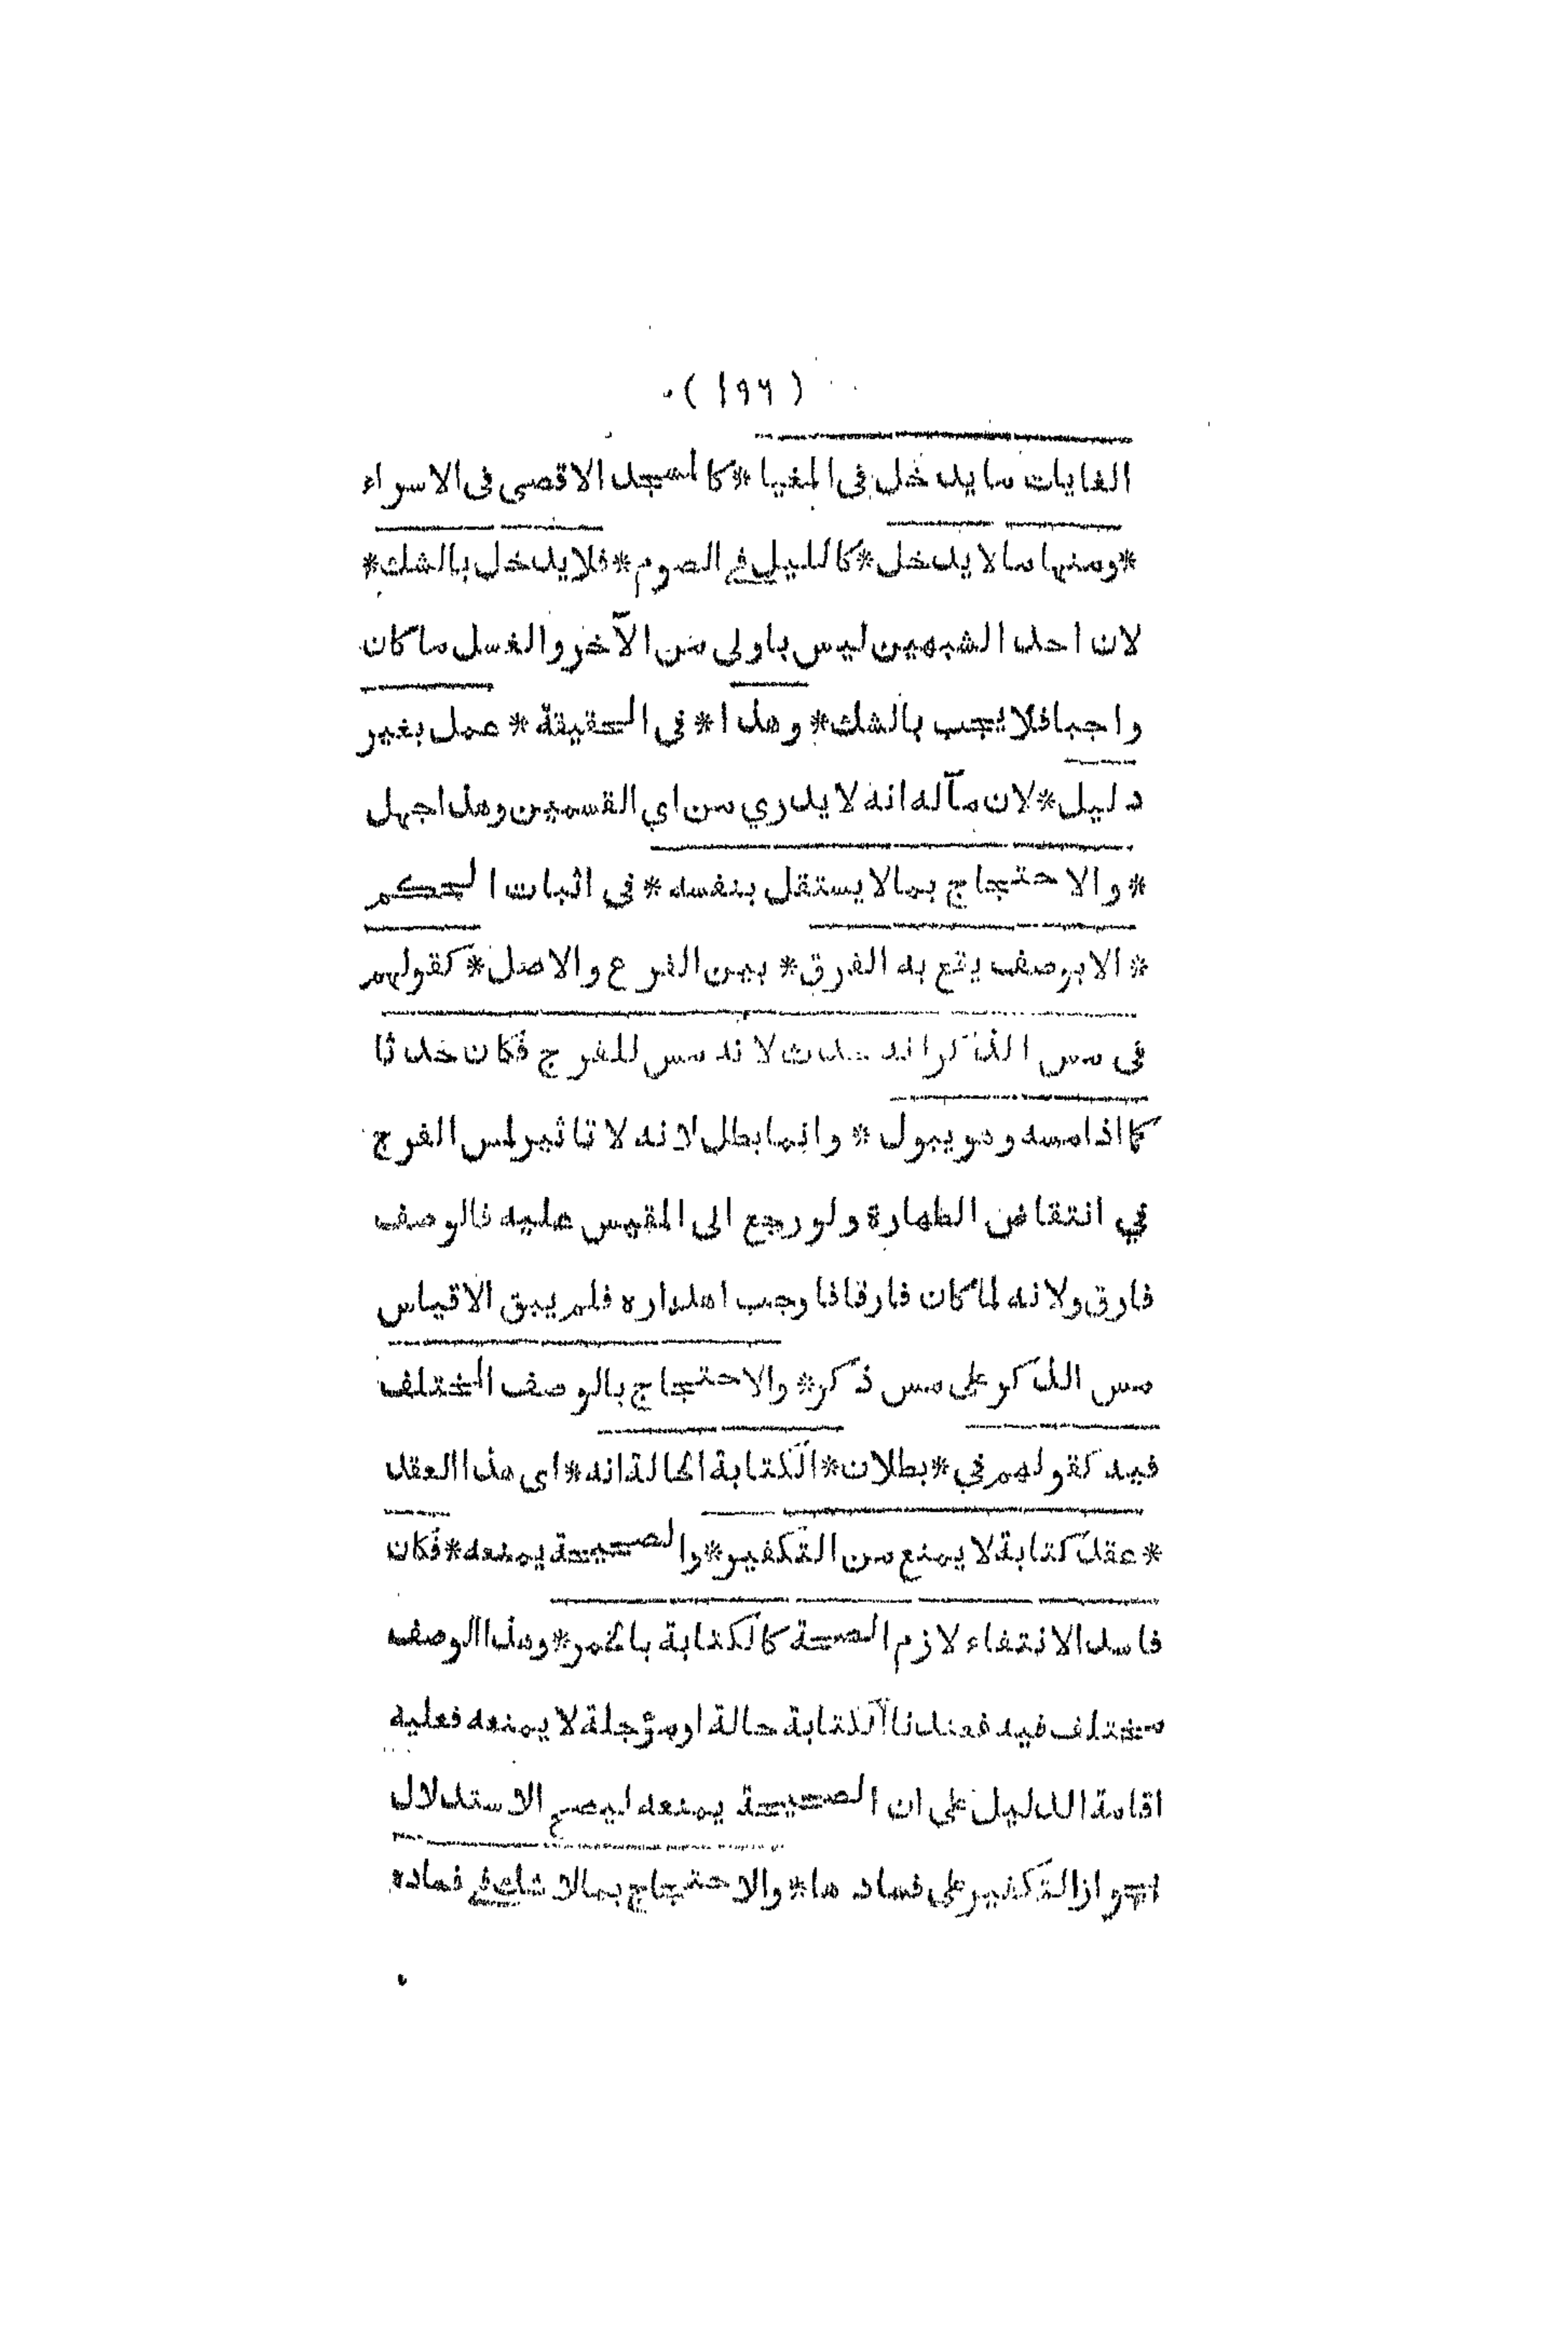 ( ١٩٦ )
الغايات ما يدخل فى المغيا * كالمسجد الاقصى فى الاسراء
* ومنها ما لا يدخل * كالليل في الصوم * فلا يدخل بالشك *
لان احد الشبهين ليس باولى من الآخر والغسل ما كان
واجبا فلا يجب بالشك * وهذا * فى الحقيقة * عمل بغير
دليل * لان مآله انه لا يدري من اي القسمين وهذا جهل
* والاحتجاج بما لا يستقل بنفسه * فى اثبات الحكم
* الا بوصف يقع به الفرق * بين الفرع والاصل * كقولهم
فى مس الذكر انه حدث لانه مس للفرج فكان حدثا
كما اذا مسه وهو يبول * وانما بطل لانه لا تاثير لمس الفرج
في انتقاض الطهارة ولو رجع الى المقيس عليه فالوصف
فارق ولانه لما كان فارقا فاوجب اهداره فلم يبق الاقياس
مس الذكر على مس ذكر * والاحتجاج بالوصف المختلف
فيه كقولهم في * بطلان * الكتابة الحالة انه * اى هذا العقد
* عقد كتابة لا يمنع من التكفير * والصحيحة يمنعه * فكان
فاسدا لانتفاء لازم الصحة كالكتابة بالخمر * وهذا الوصف
مختلف فيه فعندنا الكتابة حالة او مؤجلة لا يمنعه فعليه
اقامة الدليل على ان الصحيحة يمنعه ليصح الاستدلال
بجواز التكفير على فسادها * والاحتجاج بما لا شك في فساده